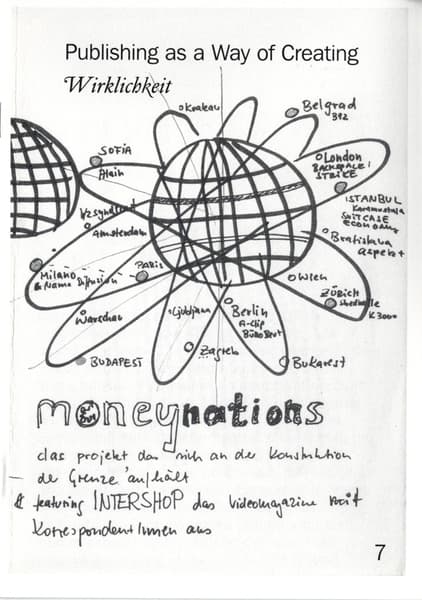 Publishing as a Way of Creating
Wirklichkeit
Krakau
Belgrad
SOFIA
London
BACKSPACE /
STRIKE
ISTANBUL
SUITCASE
ECONOMY
Amsterdam
Bratislava
aspekt
Milano
& Name Diffusion
PARIS
Wien
ZÜRICH
Shedhalle
K3000
Warschau
Ljubljana
Berlin
A-Clip
BüroBert
BUDAPEST
Zagreb
Bukarest
moneynations
das projekt das sich an der Konstitution
der Grenze aufhält
& featuring INTERSHOP das Videomagazine mit
KorrespondentInnen aus
7